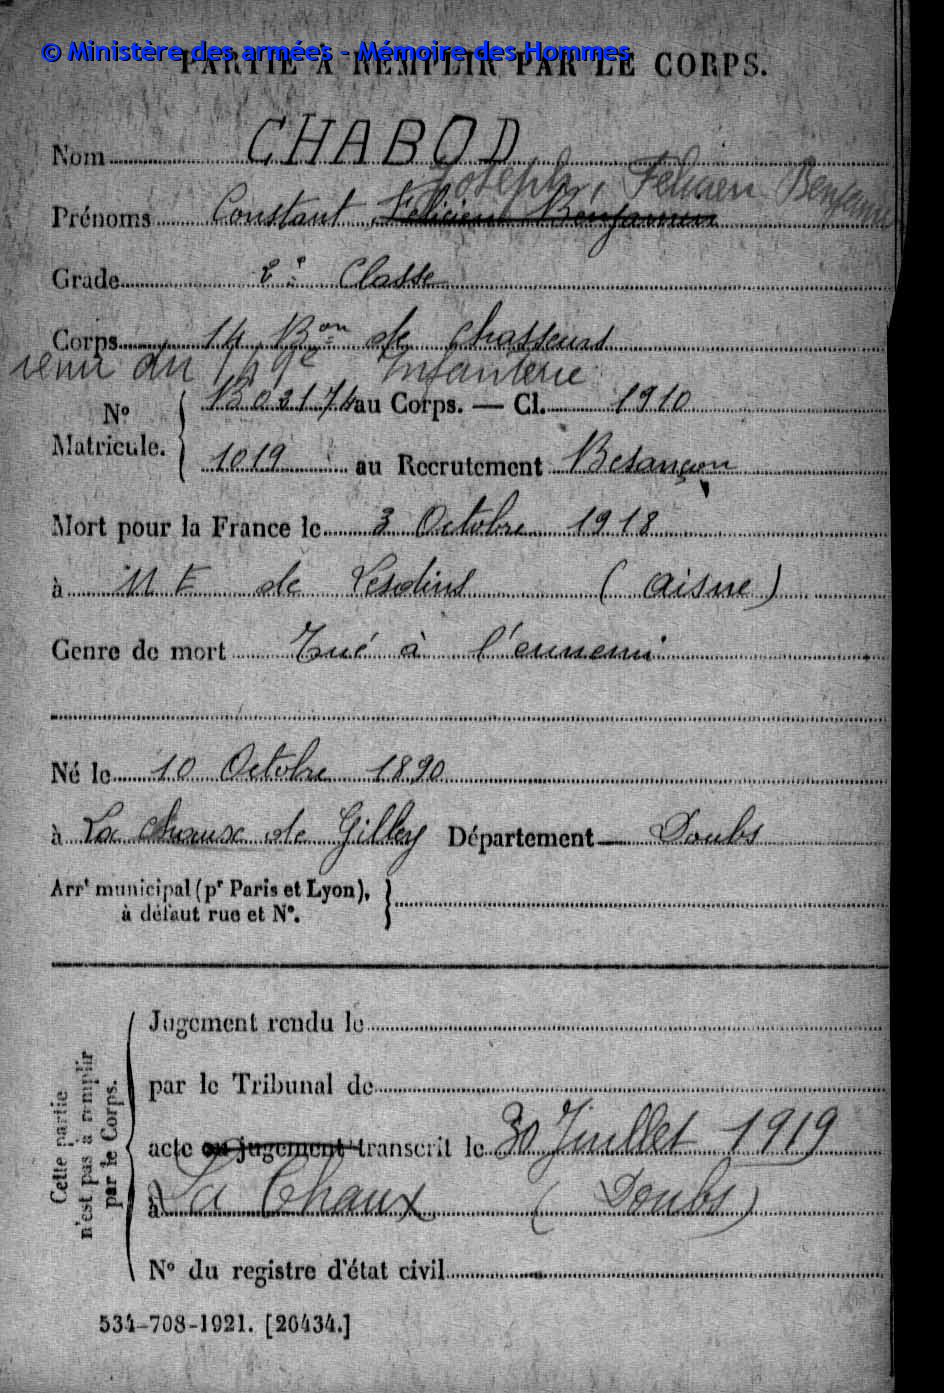 © Ministère des armées - Mémoire des Hommes
PARTIE À REMPLIR PAR LE CORPS.
Nom CHABOD
Joseph, Félicien Benjamin
Prénoms Constant Félicien Benjamin
Grade 2e Classe
Corps 14 Bon de Chasseurs
venu du 149e Infanterie
No Matricule. { B03174 au Corps. — Cl. 1910
1019 au Recrutement Besançon
Mort pour la France le 3 Octobre 1918
à N E de Lesdins (Aisne)
Genre de mort Tué à l'ennemi
Né le 10 Octobre 1890
à La Chaux de Gilley Département — Doubs
Arrt municipal (pr Paris et Lyon), }
à défaut rue et No.
Cette partie n'est pas à remplir par le Corps. {
Jugement rendu le
par le Tribunal de
acte ou jugement transcrit le 30 Juillet 1919
à La Chaux (Doubs)
No du registre d'état civil
534-708-1921. [26434.]